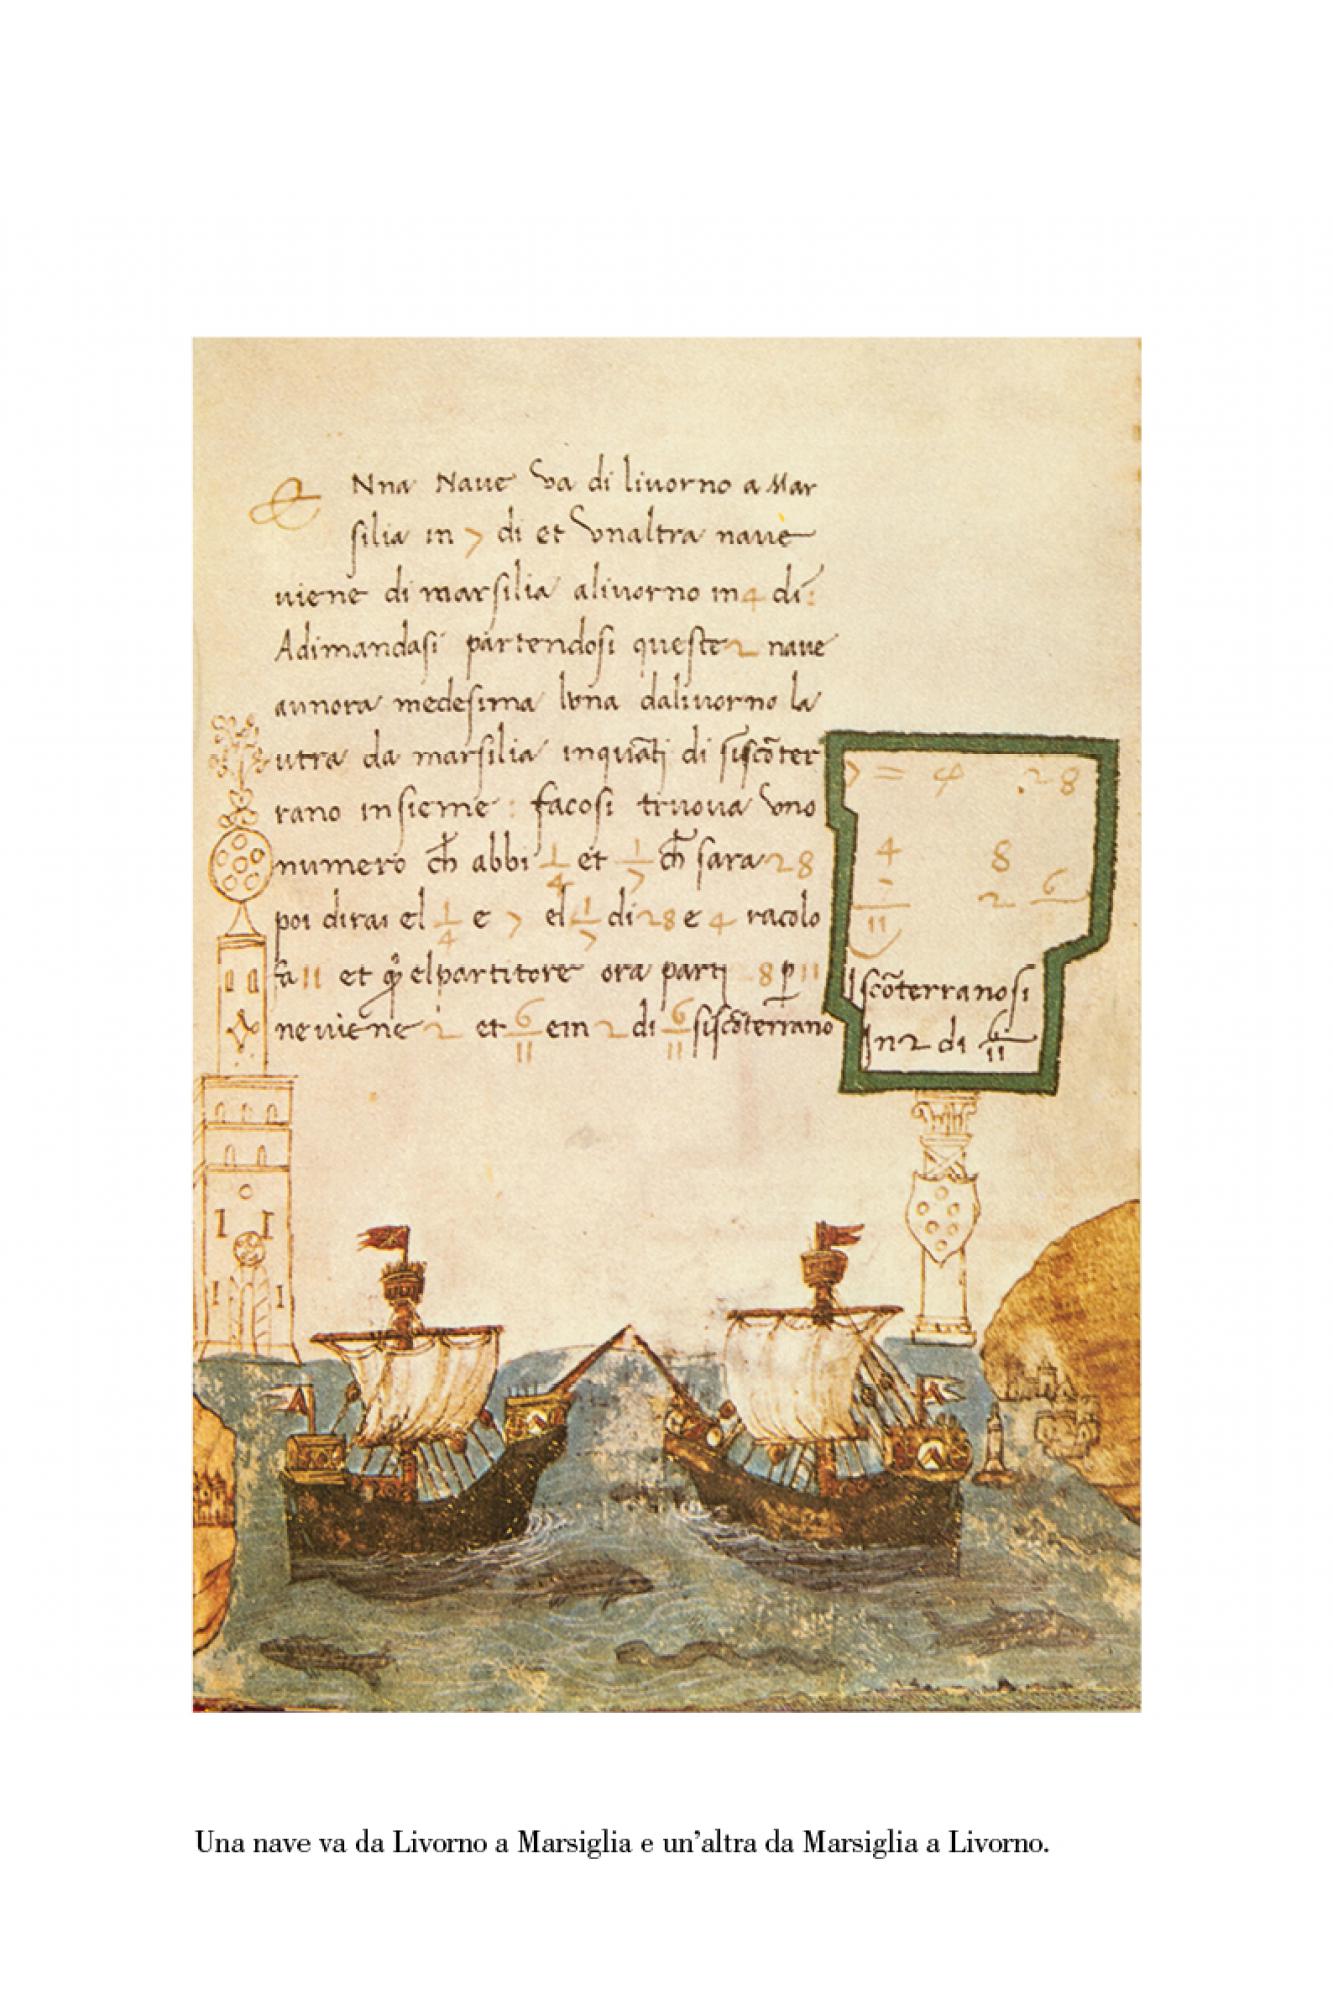 Nna Naue va di liuorno a Mar
silia in 7 di et vnaltra naue
uiene di marsilia aliuorno in 4 di:
Adimandasi partendosi queste 2 naue
aunora medesima luna daliuorno la
utra da marsilia inquāti di siscōter
rano insieme : facosi truoua vno
numero ch̄ abbi 1/4 et 1/7 ch̄ sara 28
poi dirai el 1/4 e 7 el 1/7 di 28 e 4 racolo
fa 11 et elpartitore ora parti 28 p̱ 11
neuiene 2 et 6/11 e in 2 di 6/11 siscōterrano
7 = 4 28
4 8
7 2 6
11
Iscōterranosi
In 2 di 6/11
Una nave va da Livorno a Marsiglia e un'altra da Marsiglia a Livorno.